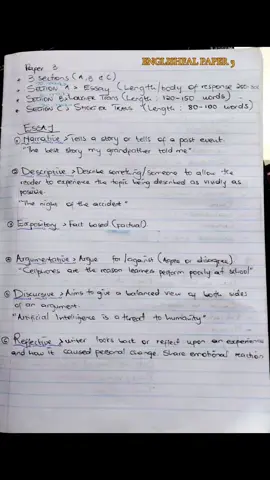 ENGLISHFAL PAPER 3
Paper 3
• 3 sections (A, B & C)
• Section A > Essay (Length: body of response 250-300
• Section B > Longer Texts (Length: 120-150 words)
• Section C > Shorter Texts (Length: 80-100 words)
ESSAY
① Narrative > Tells a story or tells of a past event.
"The best story my grandfather told me"
② Descriptive > Describe something/someone to allow the
reader to experience the topic being described as vividly as
possible.
"The night of the accident"
③ Expository > Fact based (factual)
④ Argumentative > Argue for/against (agree or disagree)
"Cellphones are the reason learners perform poorly at school"
⑤ Discursive > Aims to give a balanced view of both sides
of an argument.
"Artificial Intelligence is a threat to humanity"
⑥ Reflective > writer looks back or reflect upon an experience
and how it caused personal change. Share emotional reaction